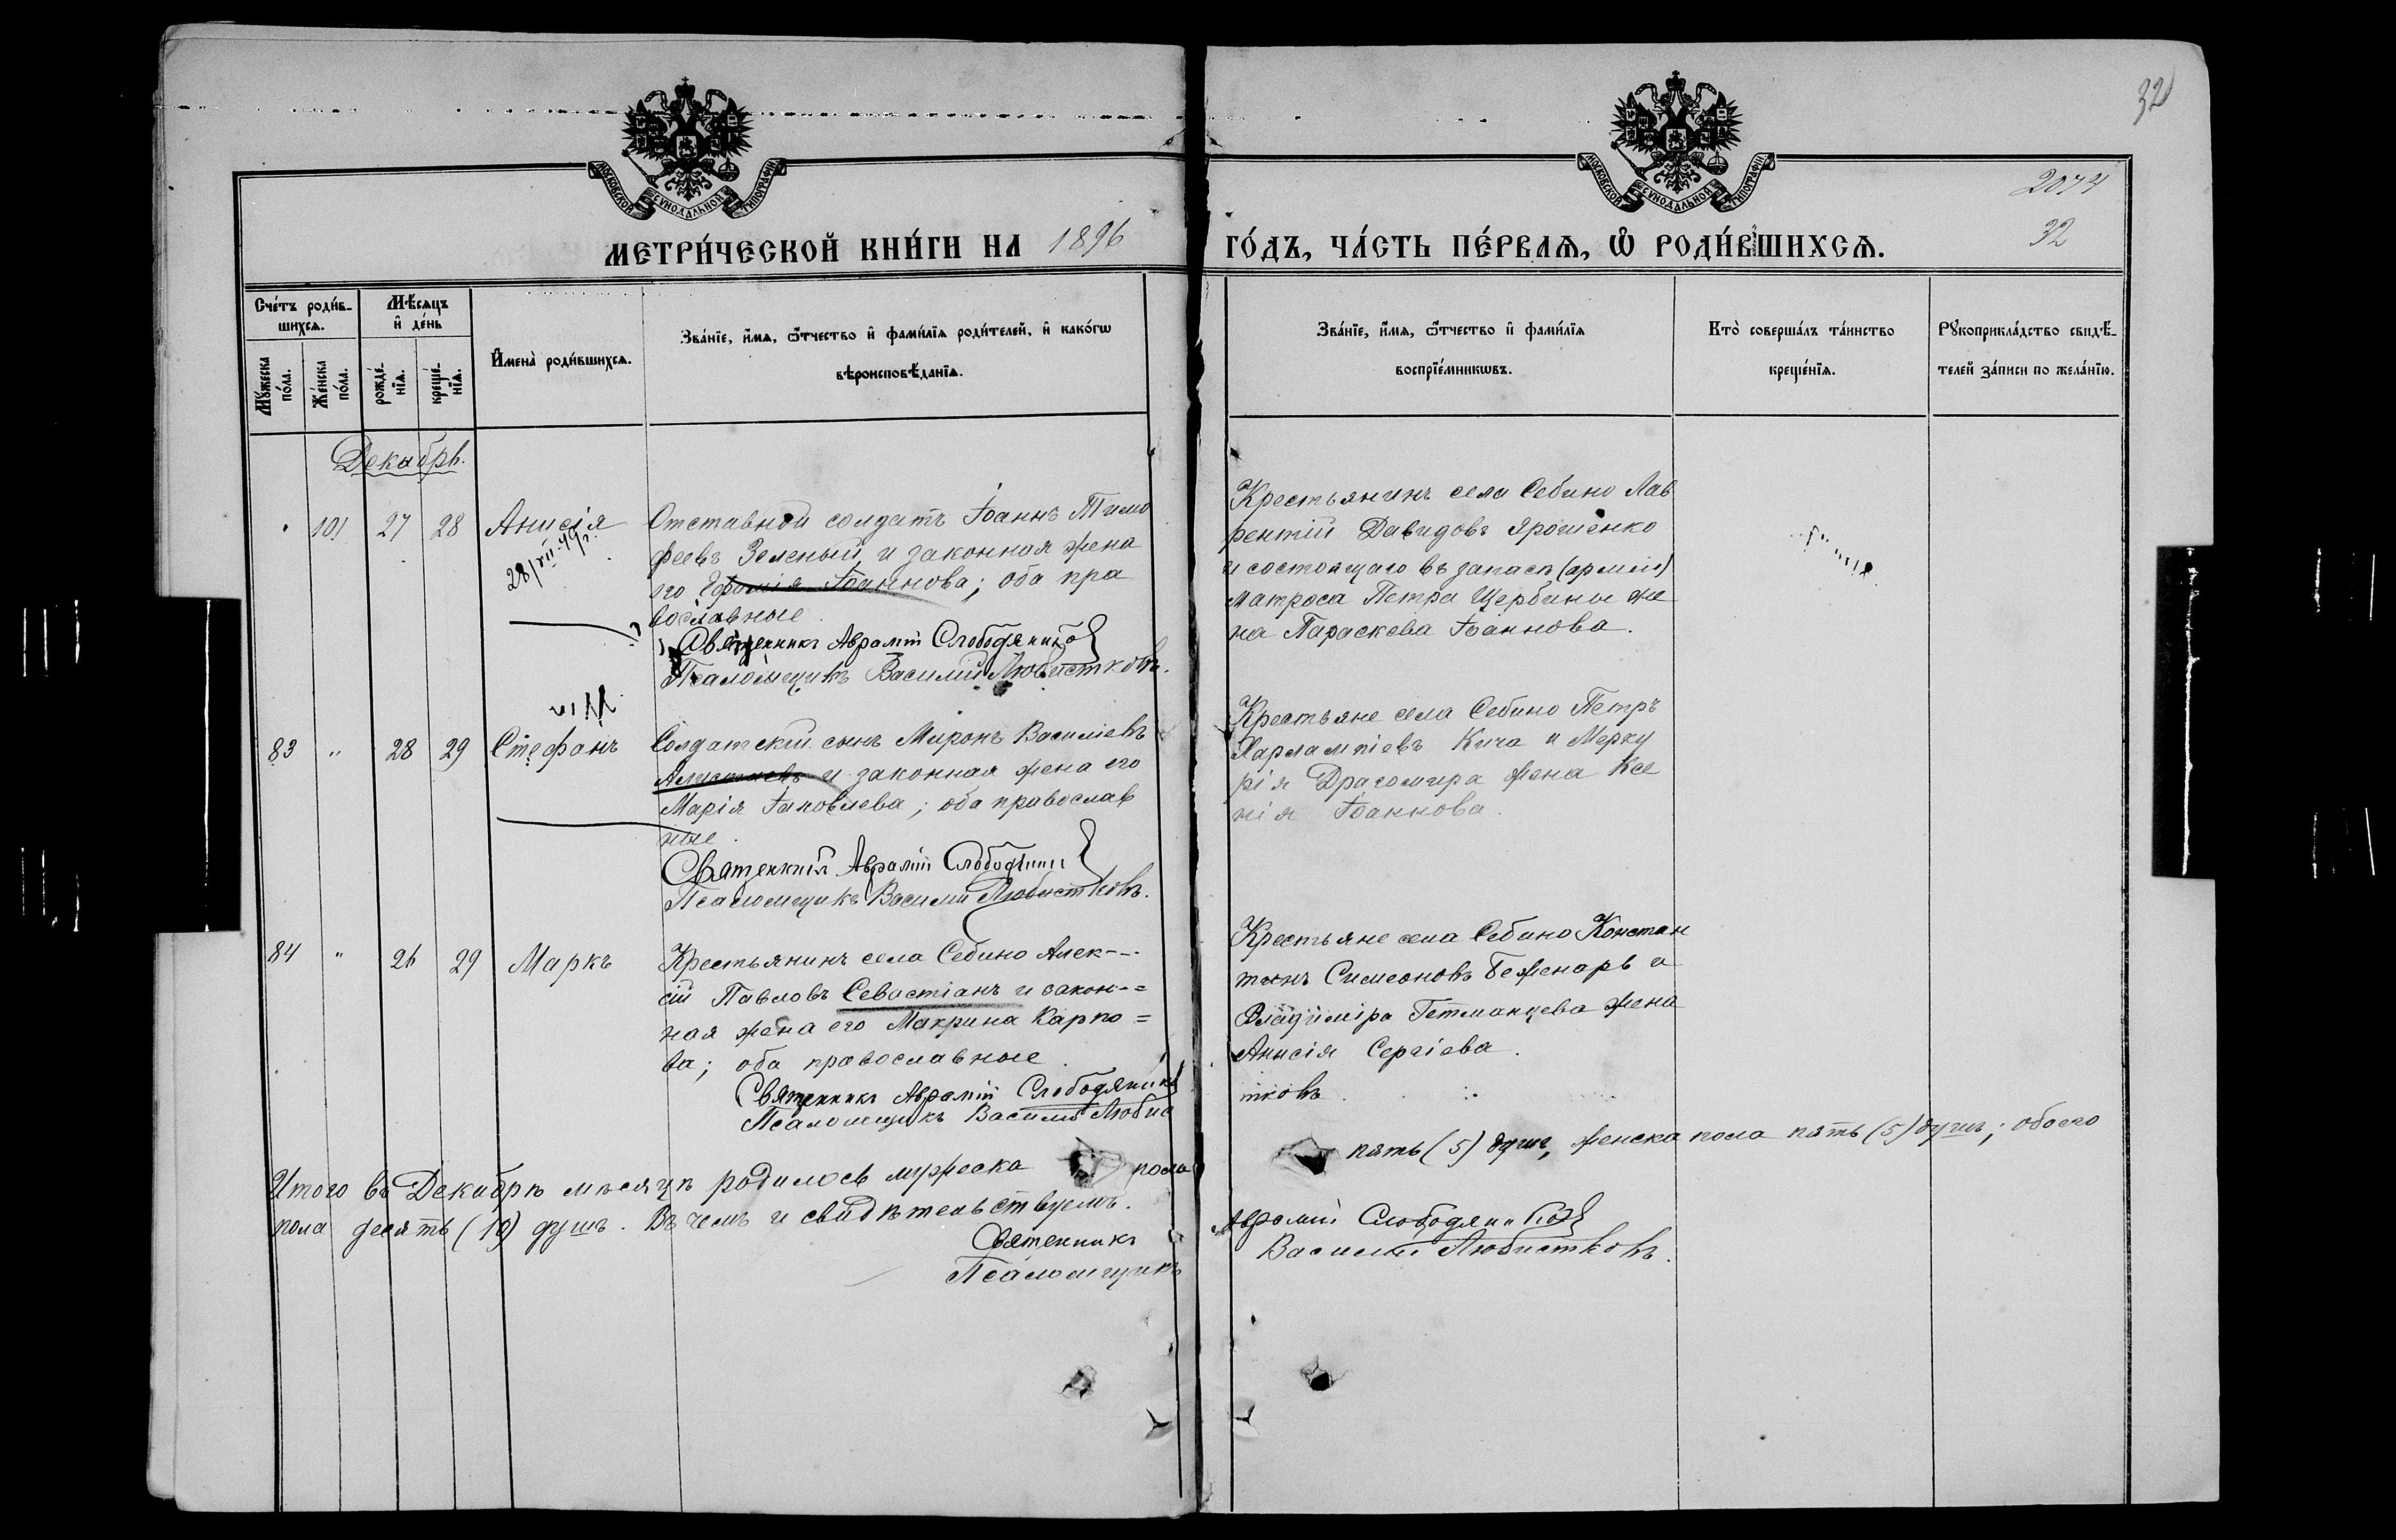 32
МОСКОВСКОЙ СѴНОДАЛЬНОЙ ТИПОГРАФІИ
МОСКОВСКОЙ СѴНОДАЛЬНОЙ ТИПОГРАФІИ
32
МЕТРИ́ЧЕСКОЙ КНИ́ГИ НА 1896 ГО́ДЪ, ЧА́СТЬ ПЕ́РВАѦ, Ѡ҆ РОДИ́ВШИХСѦ.
Сче́тъ роди́в-
шихсѧ.
Мꙋ́жеска
по́ла.
Же́нска
по́ла.
Мѣ́сѧцъ
и҆ де́нь
рожде́-
нїѧ.
креще́-
нїѧ.
И҆мена̀ роди́вшихсѧ.
Зва́нїе, и҆́мѧ, ѻ҆́тчество и҆ фами́лїѧ роди́телей, и҆ како́гѡ
вѣроисповѣ́данїѧ.
Зва́нїе, и҆́мѧ, ѻ҆́тчество и҆ фами́лїѧ
воспрїе́мникѡвъ.
Кто̀ соверша́лъ та́инство
креще́нїѧ.
Рꙋкоприкла́дство свидѣ́-
телей за́писи по жела́нїю.
Декабрь.
101 27 28 Анисія
28/XII-49г.
Отставной солдатъ Іоаннъ Тимо
феевъ Зеленый и законная жена
его Іоаннова; оба пра
вославные
Священникъ Аврамій Слободяников
Псаломщикъ Василій Любистковъ.
Крестьянинъ села Себино Лав
рентій Давидовъ Ярошенко
и состоящаго въ запасѣ (арміи)
матроса Петра Щербины же
на Параскева Іоаннова.
83 " 28 29 Стефанъ
Солдатскій сынъ Миронъ Василіевъ
и законная жена его
Марія Іаковлева; оба православ
ные.
Священникъ Аврамій
Псаломщикъ Василій Любистковъ.
Крестьяне села Себино Петръ
Харлампіевъ Кича и Мерку
рія Драгомира жена Ксе
нія Іоаннова.
84 " 26 29 Маркъ
Крестьянинъ села Себино Алек--
сій Павловъ Севастіанъ и закон-=
ная жена его Макрина Карпо=
ва; оба православные.
Священникъ Аврамій Слободяников
Псаломщикъ Василій Любис
тковъ
Крестьяне села Себино Констан
тинъ Симеоновъ Беженарь и
Владиміра Гетманцева жена
Анисія Сергіева.
Итого въ Декабрѣ мѣсяцѣ родилось мужеска пола пять (5) душъ, женска пола пять (5) душъ; обоего
пола десять (10) душъ. Въ чемъ и свидѣтельствуемъ.
Священникъ Аврамій Слободяников
Псаломщикъ Василій Любистковъ.